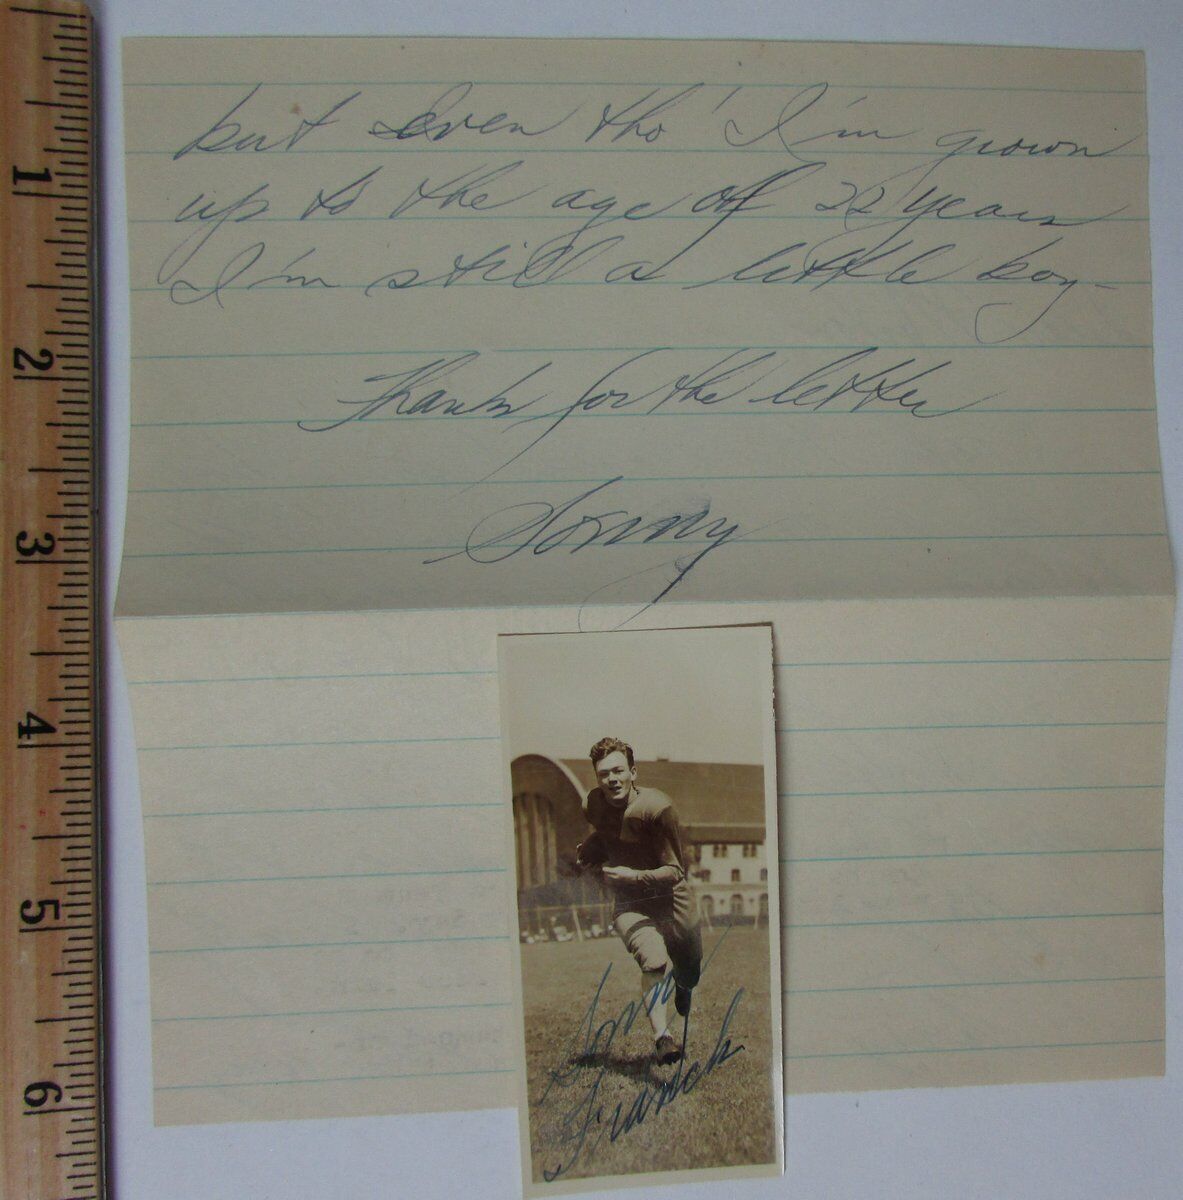 but even tho' I'm grown
up to the age of 22 years
I'm still a little boy-
Thanks for the letter
Sonny
Sonny
Franck
1
2
3
4
5
6